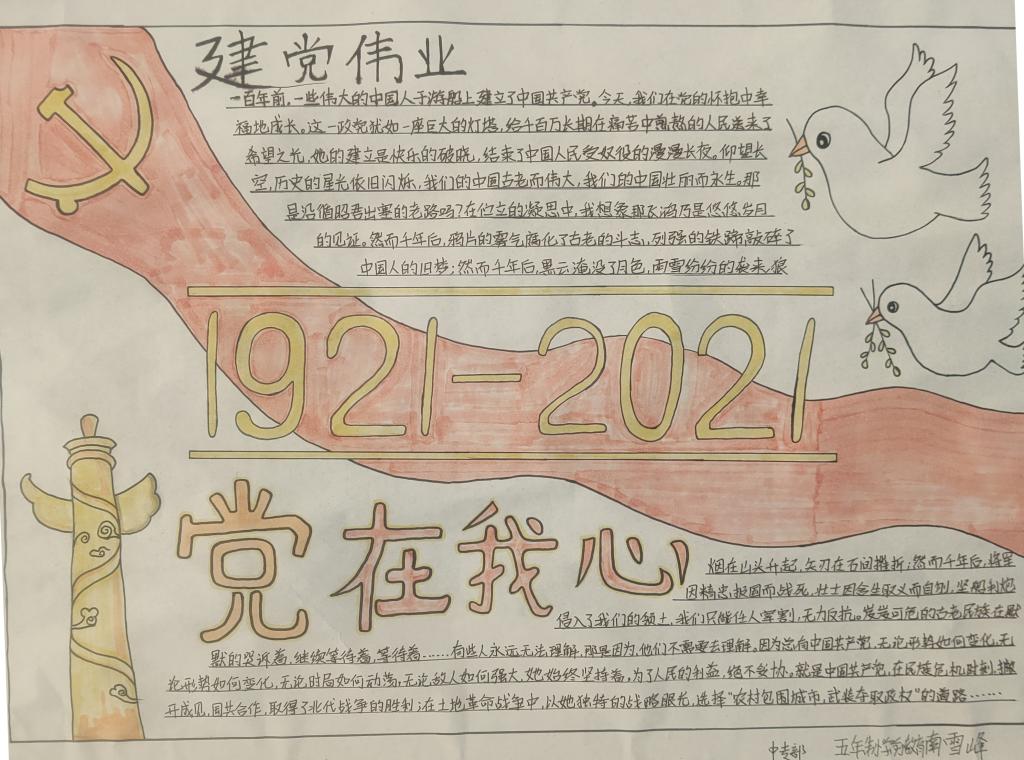 建党伟业
一百年前,一些伟大的中国人于游船上建立了中国共产党。今天,我们在党的怀抱中幸
福地成长。这一政党犹如一座巨大的灯塔,给千百万长期在痛苦中煎熬的人民送来了
希望之光,她的建立是快乐的破晓,结束了中国人民受奴役的漫漫长夜。仰望长
空,历史的星光依旧闪烁,我们的中国古老而伟大,我们的中国壮丽而永生。那
是沿循昭君出塞的老路吗?在伫立的凝思中,我想象那飞鸿乃是悠悠岁月
的见证。然而千年后,鸦片的雾气腐化了古老的斗志,列强的铁蹄敲碎了
中国人的旧梦;然而千年后,黑云淹没了月色,雨雪纷纷的袭来,狼
1921-2021
党在我心
烟在山头升起,矢刃在石间摧折;然而千年后,将星
因精忠报国而战死,壮士因舍生取义而自刎,坚船利炮
侵入了我们的领土,我们只能任人宰割,无力反抗。岌岌可危的古老民族在默
默的哭诉着,继续等待着,等待着……有些人永远无法理解,那是因为,他们不需要去理解。因为志向中国共产党,无论形势如何变化,无
论形势如何变化,无论时局如何动荡,无论敌人如何强大,她始终坚持着,为了人民的利益,绝不妥协。就是中国共产党,在民族危机时刻,撇
开成见,国共合作,取得了北伐战争的胜利;在土地革命战争中,以她独特的战略眼光,选择"农村包围城市,武装夺取政权"的道路……
中专部 五年制学前教育南雪峰